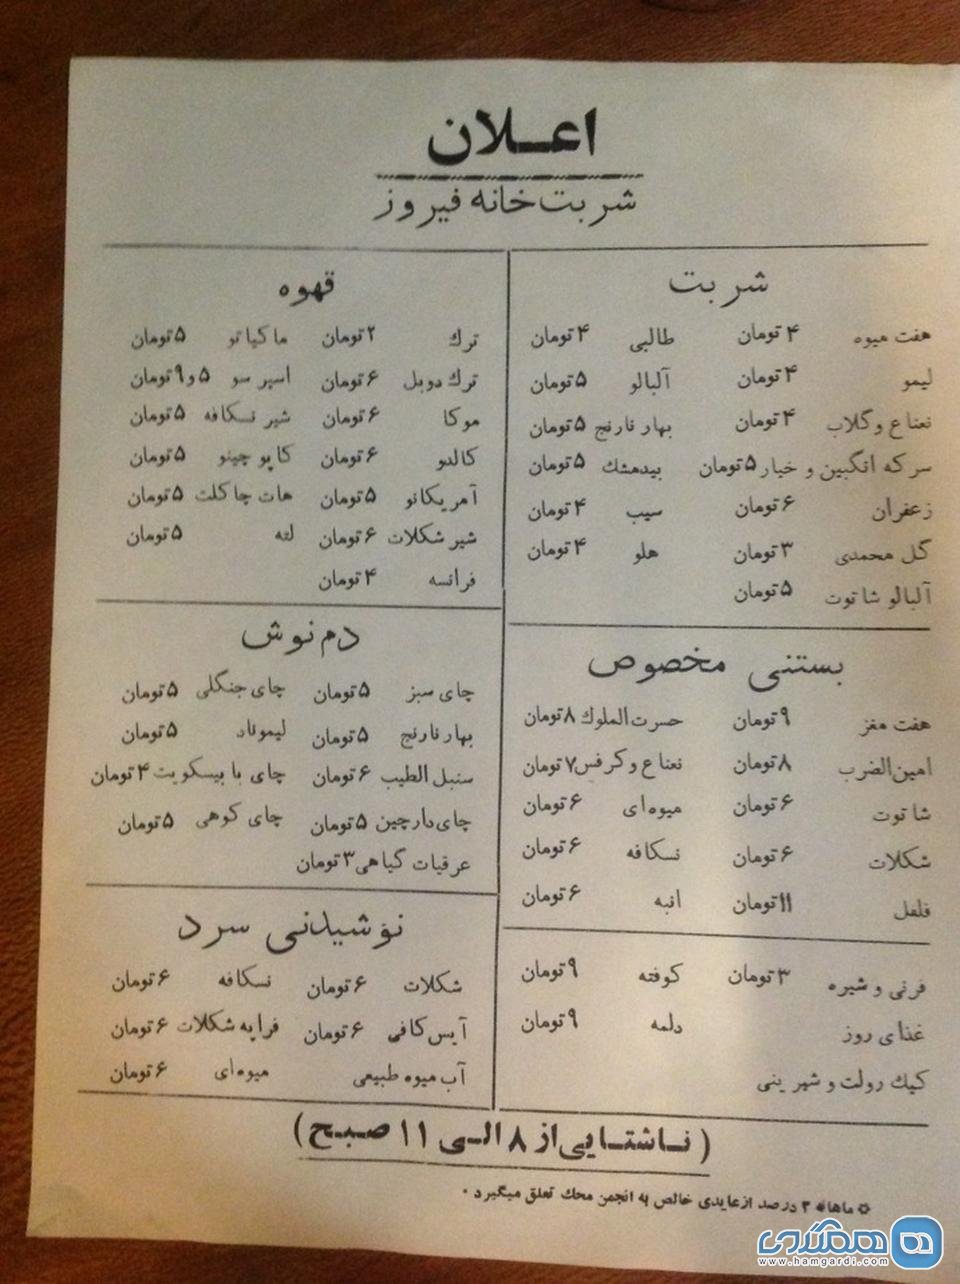 اعلان
شربت‌خانه فیروز
شربت
هفت میوه ۴ تومان طالبی ۴ تومان
لیمو ۴ تومان آلبالو ۵ تومان
نعناع و گلاب ۴ تومان بهار نارنج ۵ تومان
سرکه انگبین و خیار ۵ تومان بیدمشك ۵ تومان
زعفران ۶ تومان سیب ۴ تومان
گل محمدی ۳ تومان هلو ۴ تومان
آلبالو شاتوت ۵ تومان
بستنی مخصوص
هفت مغز ۹ تومان حسرت‌الملوك ۸ تومان
امین‌الضرب ۸ تومان نعناع و کرفس ۷ تومان
شاتوت ۶ تومان میوه‌ای ۶ تومان
شکلات ۶ تومان نسکافه ۶ تومان
فلفل ۱۱ تومان انبه ۶ تومان
فرنی و شیره ۳ تومان کوفته ۹ تومان
غذای روز دلمه ۹ تومان
کیك رولت و شیرینی
قهوه
ترك ۲ تومان ماکیاتو ۵ تومان
ترك دوبل ۶ تومان اسپرسو ۵ و ۹ تومان
موکا ۶ تومان شیر نسکافه ۵ تومان
کالدو ۶ تومان کاپوچینو ۵ تومان
آمریکانو ۵ تومان هات چاکلت ۵ تومان
شیر شکلات ۶ تومان لته ۵ تومان
فرانسه ۴ تومان
دم‌نوش
چای سبز ۵ تومان چای جنگلی ۵ تومان
بهار نارنج ۵ تومان لیموناد ۵ تومان
سنبل الطیب ۶ تومان چای با بیسکویت ۴ تومان
چای دارچین ۵ تومان چای کوهی ۵ تومان
عرقیات گیاهی ۳ تومان
نوشیدنی سرد
شکلات ۶ تومان نسکافه ۶ تومان
آیس‌کافی ۶ تومان فراپه شکلات ۶ تومان
آب میوه طبیعی میوه‌ای ۶ تومان
(ناشتایی از ۸ الی ۱۱ صبح)
ماهانه ۳ درصد از عایدی خالص به انجمن محك تعلق میگیرد .
همگردی
www.hamgardi.com